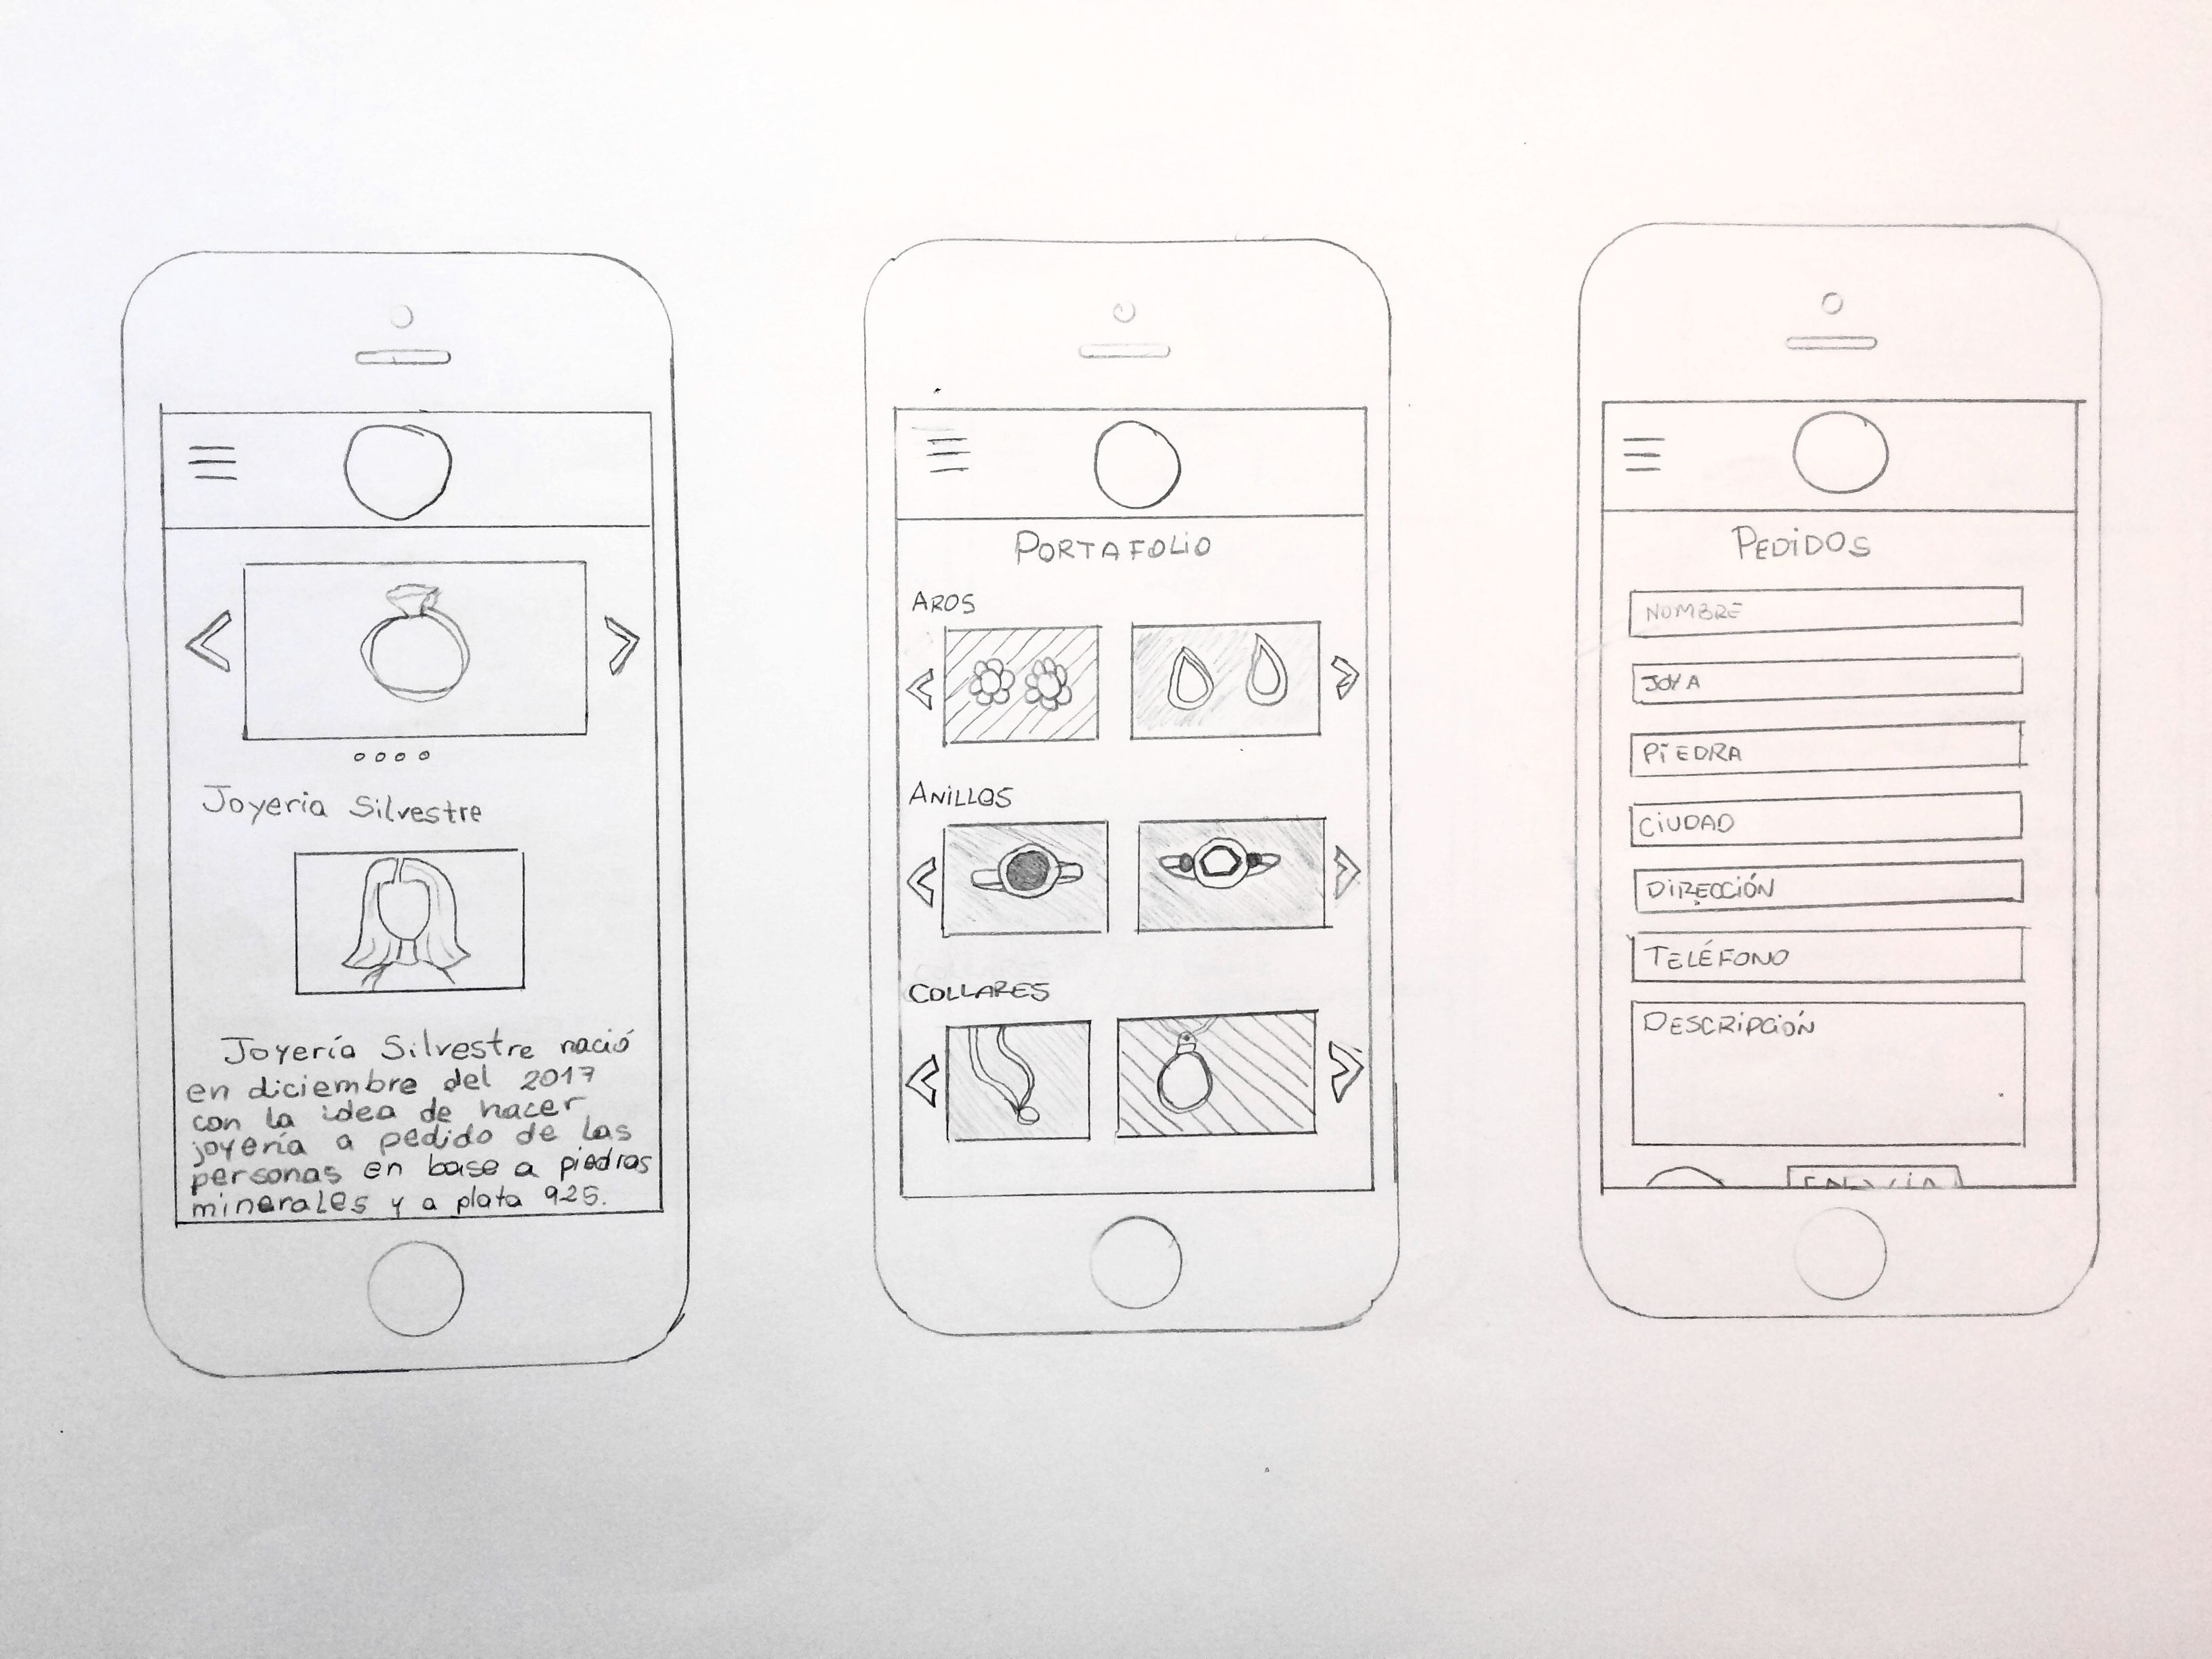 Joyeria Silvestre
Joyería Silvestre nació
en diciembre del 2017
con la idea de hacer
joyería a pedido de las
personas en base a piedras
minerales y a plata 925.
PORTAFOLIO
AROS
ANILLOS
COLLARES
PEDIDOS
NOMBRE
JOYA
PIEDRA
CIUDAD
DIRECCIÓN
TELÉFONO
DESCRIPCIÓN